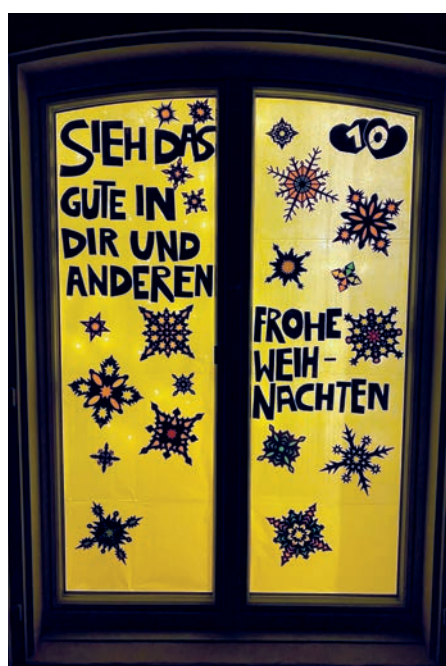 SIEH DAS
GUTE IN
DIR UND
ANDEREN
10
FROHE
WEIH-
NACHTEN